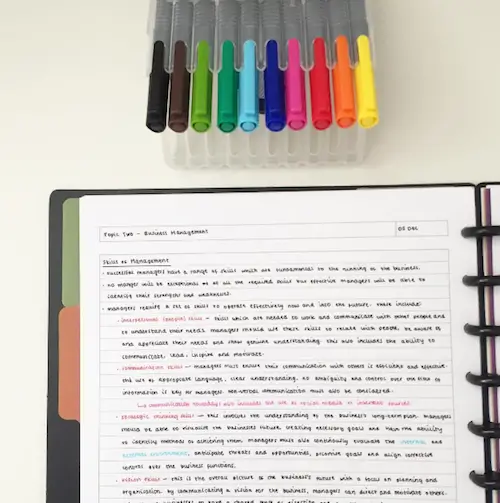 Topic Two - Business Management
03 Dec
Skills of Management
· successful managers have a range of skills which are fundamental to the running of the business.
· no manager will be exceptional at all the required skills but effective managers will be able to
identify their strengths and weaknesses.
· managers require a set of skills to operate effectively now and into the future. these include:
· interpersonal (people) skills - skills which are needed to work and communicate with other people and
to understand their needs. managers should use these skills to relate with people, be aware of
and appreciate their needs and show genuine understanding. this also includes the ability to
communicate, lead, inspire and motivate.
· communication skills - managers must ensure their communication with others is efficient and effective.
the use of appropriate language, clear understanding, no ambiguity and control over the tone of
information is key for managers. non-verbal communication must also be considered.
↳ communication nowadays also includes the use of emails or internet sources
· strategic thinking skills - this involves the understanding of the business's long-term plan. managers
should be able to visualise the business's future, creating necessary goals and have the ability
to identify methods of achieving them. managers must also continually evaluate the internal and
external environment, anticipate threats and opportunities, prioritise goals and align corrective
control over the business functions.
· vision skills - this is the overall picture of the business's future with a focus on planning and
organising. by communicating a vision for the business, managers can direct and motivate others